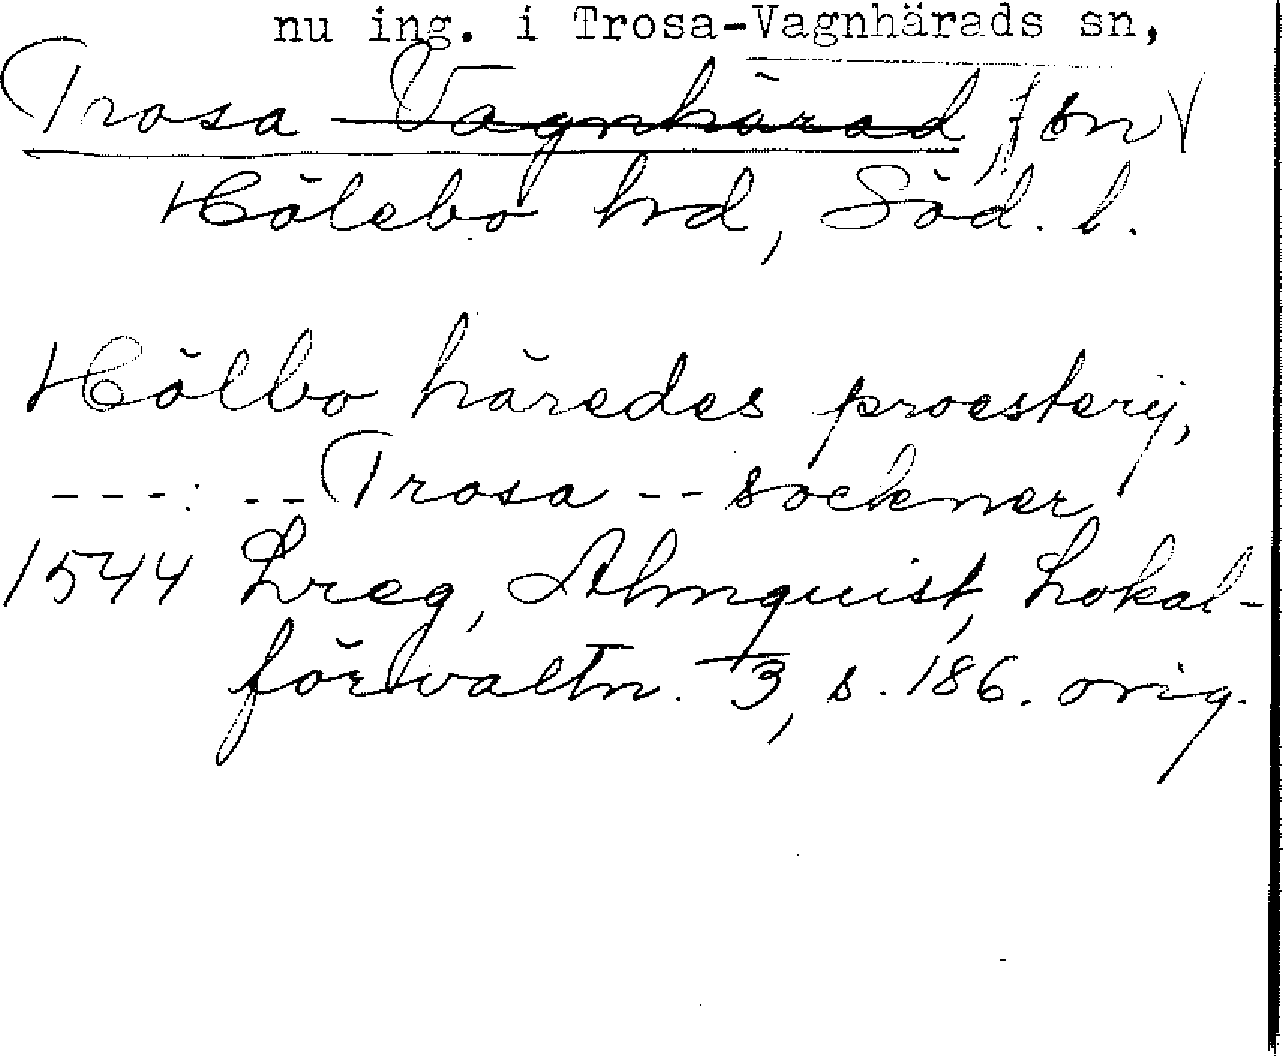 nu ing. i Trosa-Vagnhärads sn,
Trosa Vagnhärad, f sn V
Hölebo hd, Söd. l.
Hölbo häredes proesterij,
---: --Trosa--sockner
1544 Lreg, Almquist, Lokal-
förvaltn. 3, s. 186. orig.